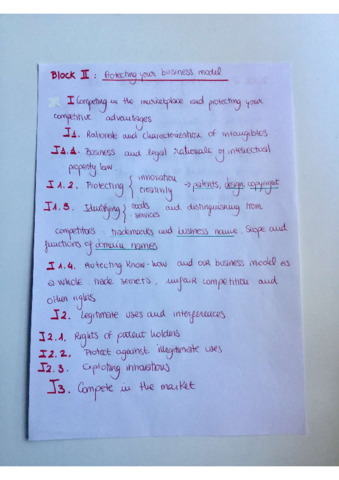 Block II : Protecting your business model
I Competing in the marketplace and protecting your
competitive advantages
I1. Rationale and characterization of intangibles
I1.1. Business and legal rationale of intellectual
property law
I1.2. Protecting { innovation creativity → patents, design, copyright
I1.3. Identifying { goods services and distinguishing from
competitors: trademarks and business name. Slope and
functions of domain names
I1.4. Protecting know-how and our business model as
a whole: trade secrets, unfair competition and
other rights
I2. Legitimate uses and interferences.
I2.1. Rights of patent holders
I2.2. Protect against illegitimate uses
I2.3. Exploiting innovations
I3. Compete in the market